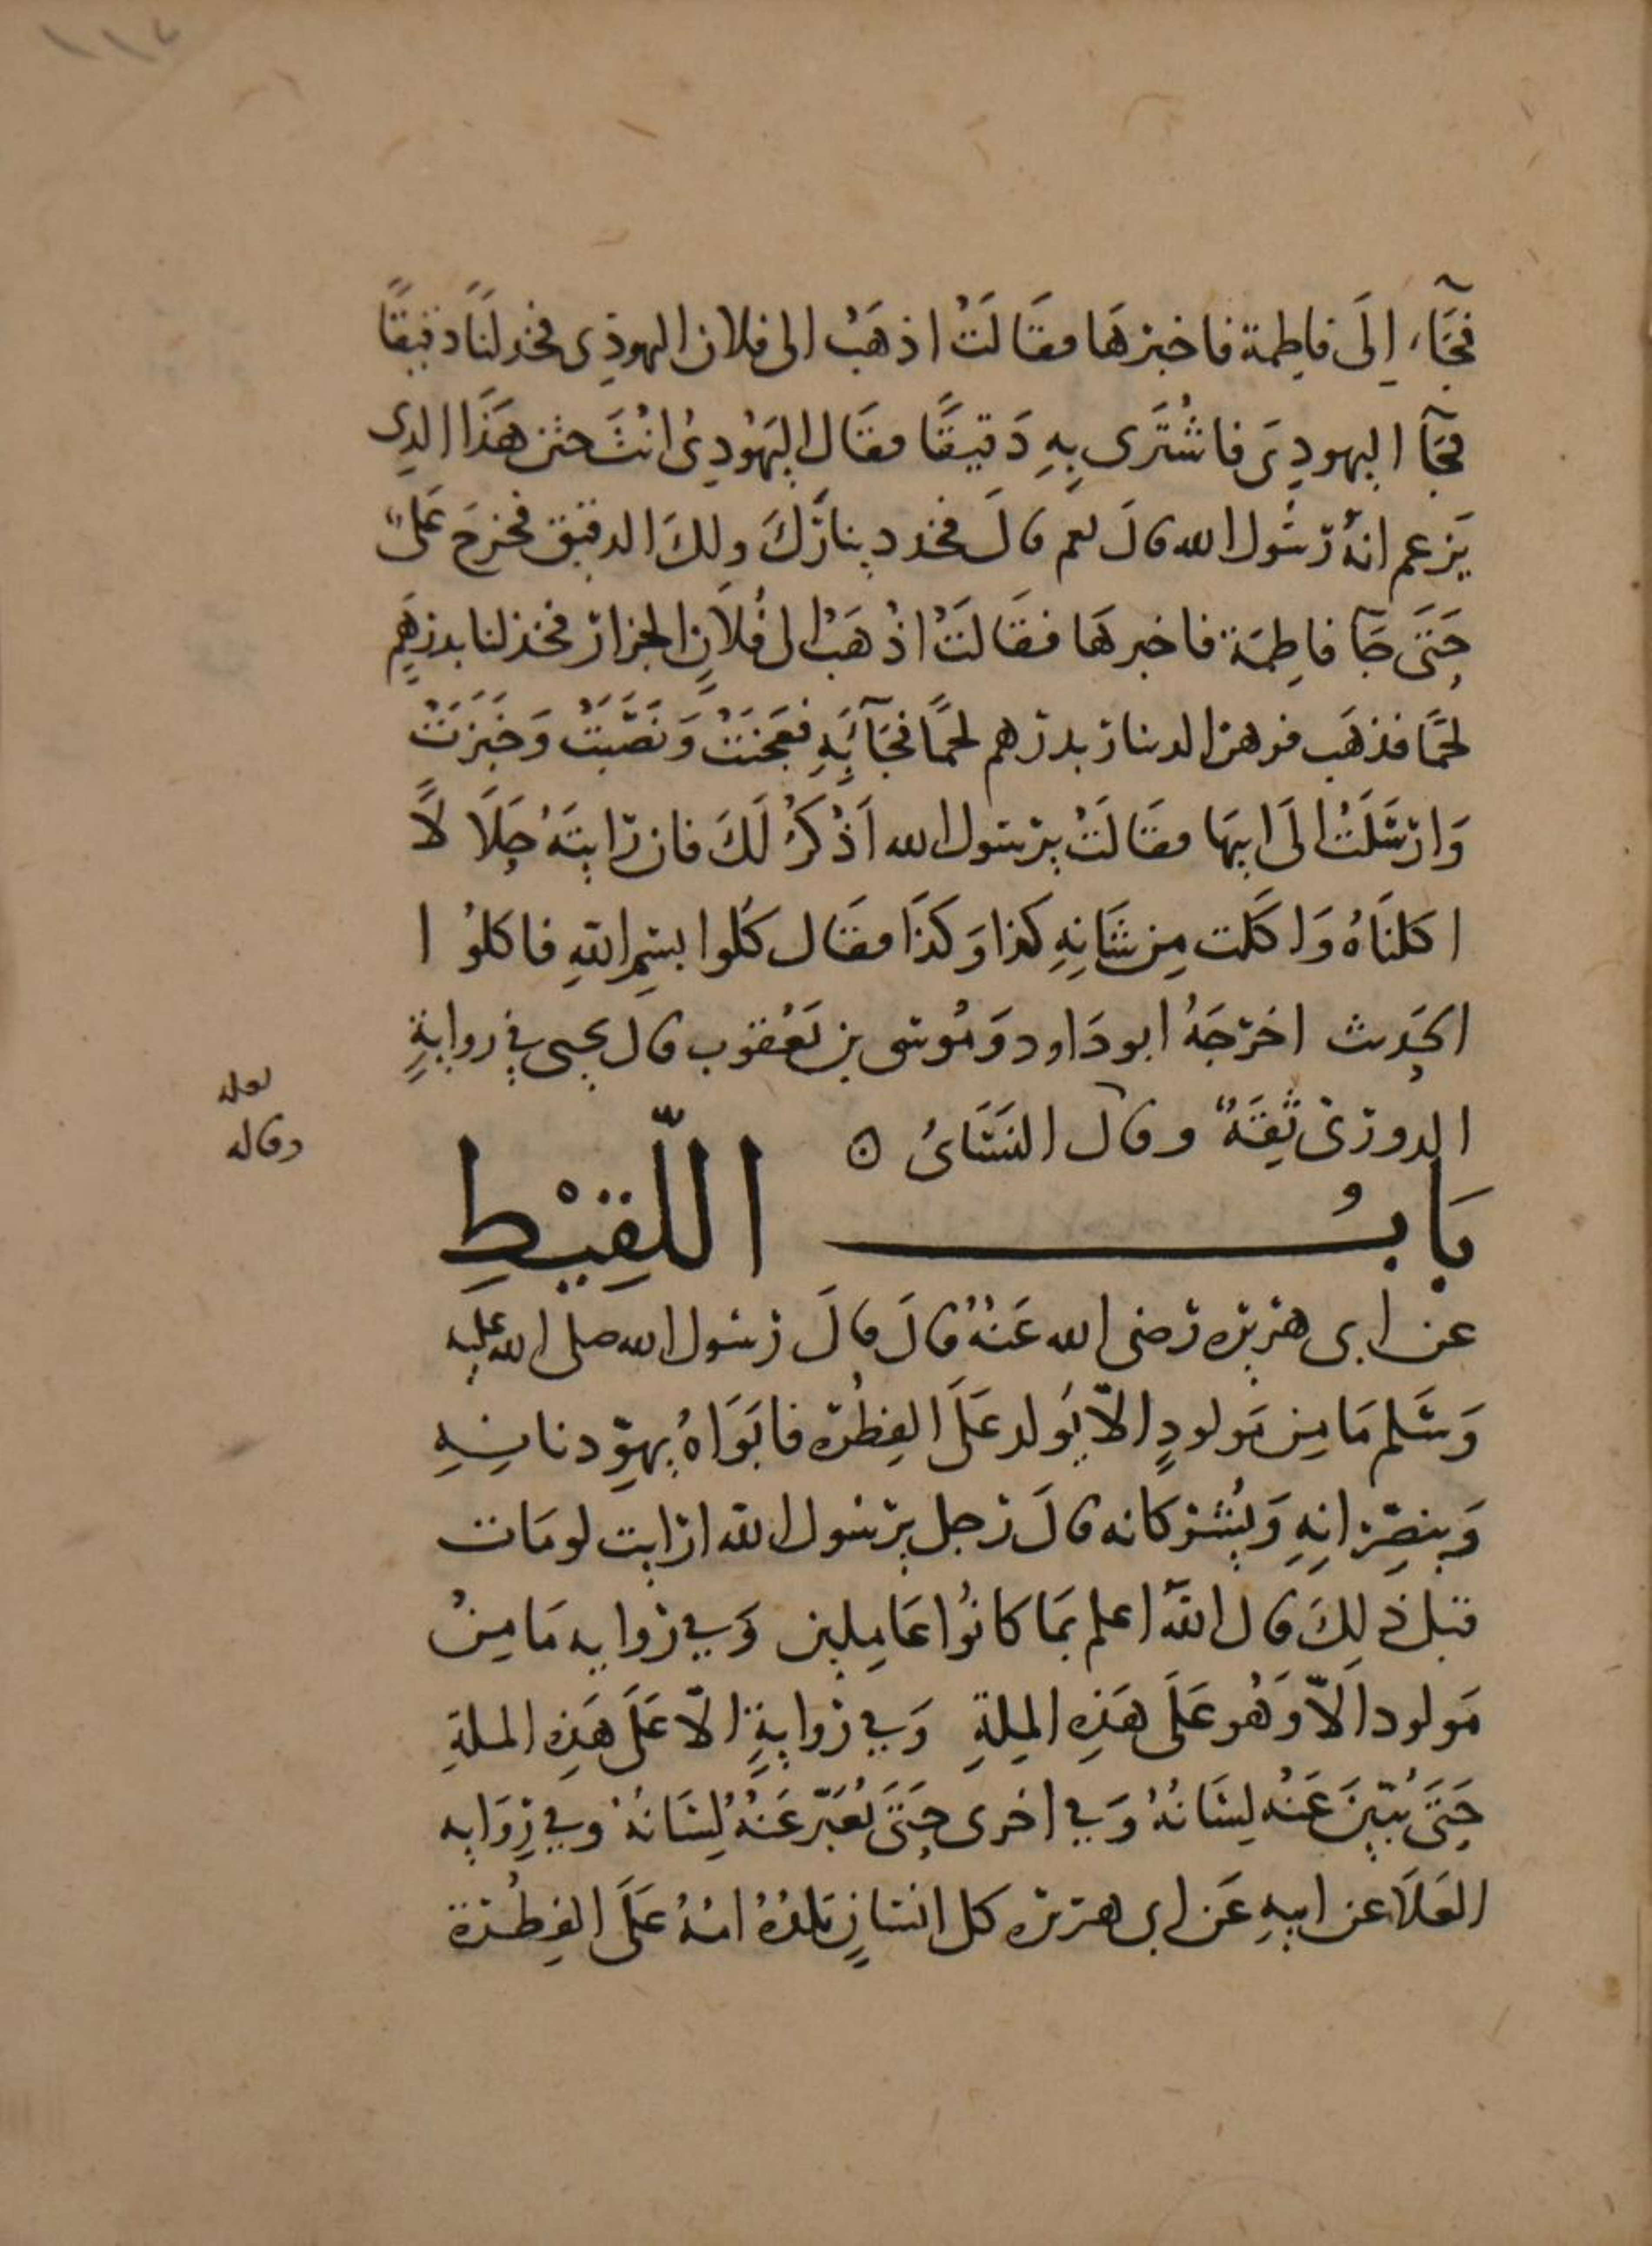 ١١٧
فجآءَ إِلَى فاطِمة فاخبرهَا فقَالَتْ اذهَبْ الى فلان اليهوذِى فخذ لنَا دقيقًا
فجآ اليهودِىَ فاشْتَرى بِهِ دَقيقًا فقَال اليَهُودِىُ انْتَ ختن هَذَا الذِى
يَزعم انهُ رَسُول الله قالَ نعم قالَ فخذ دينارَكَ ولكَ الدقيق فخرجَ عَلىٌّ
حَتَى جَآ فاطِمَة فاخبرهَا فقَالَتْ اذْهَبْ الى فُلَانٍ الجزار فخذ لنا بدرهَمٍ
لحمًا فذهَب فرهن الدينار بدرهم لحمًا فجَآ بِهِ فعَجَنَتْ وَنَصَبَتْ وَخَبَزَتْ
وَارسَلَتْ الَى ابيهَا فقَالَتْ يرسول الله اَذْكُرُ لَكَ فان رَايتَهُ حَلَالًا
اكلنَاهُ وَاكَلت مِن شَانِهِ كذا وَكذَا فقَال كلوا بسْمِ اللهِ فاكلوْا
الحَدِيث اخرَجَهُ ابو دَاود وَمُوسَى بن يَعْقوب قال يحيى في روايةٍ
الدورَىّ ثِقَةٌ وقال النَسَائىُ ٥
بَابُ اللَّقِيْطِ
عن ابى هريره رَضى الله عَنْهُ قالَ قالَ رَسُول الله صلى الله عليه
وَسَلم مَا مِن مَولودٍ الاّ يُولد عَلَى الفِطْرَه فابَوَاهُ يهوّدنا نِهِ
وَينصِّرَانِهِ وَيُشركانه قالَ رَجل يرسُول الله ارَايت لو مَات
قبل ذلِكَ قال اللهُ اعلم بمَا كانُوا عَامِلين وَفي روايه مَا مِنْ
مَولود الاّ وَهُو عَلَى هَذِه المِلةِ وَفي روايةٍ الاّ عَلَى هَذِه الملةِ
حَتَى يُبَيّنَ عَنْه لِسَانُهُ وَفي اخرى حَتَى يُعَبّرَ عَنْهُ لِسَانُهُ وفي رِوَايه
العَلَا عن ابيهِ عَن ابى هريره كل انسَانٍ تلدُهُ امُهُ عَلَى الفِطْرَة
لعله
وقاله